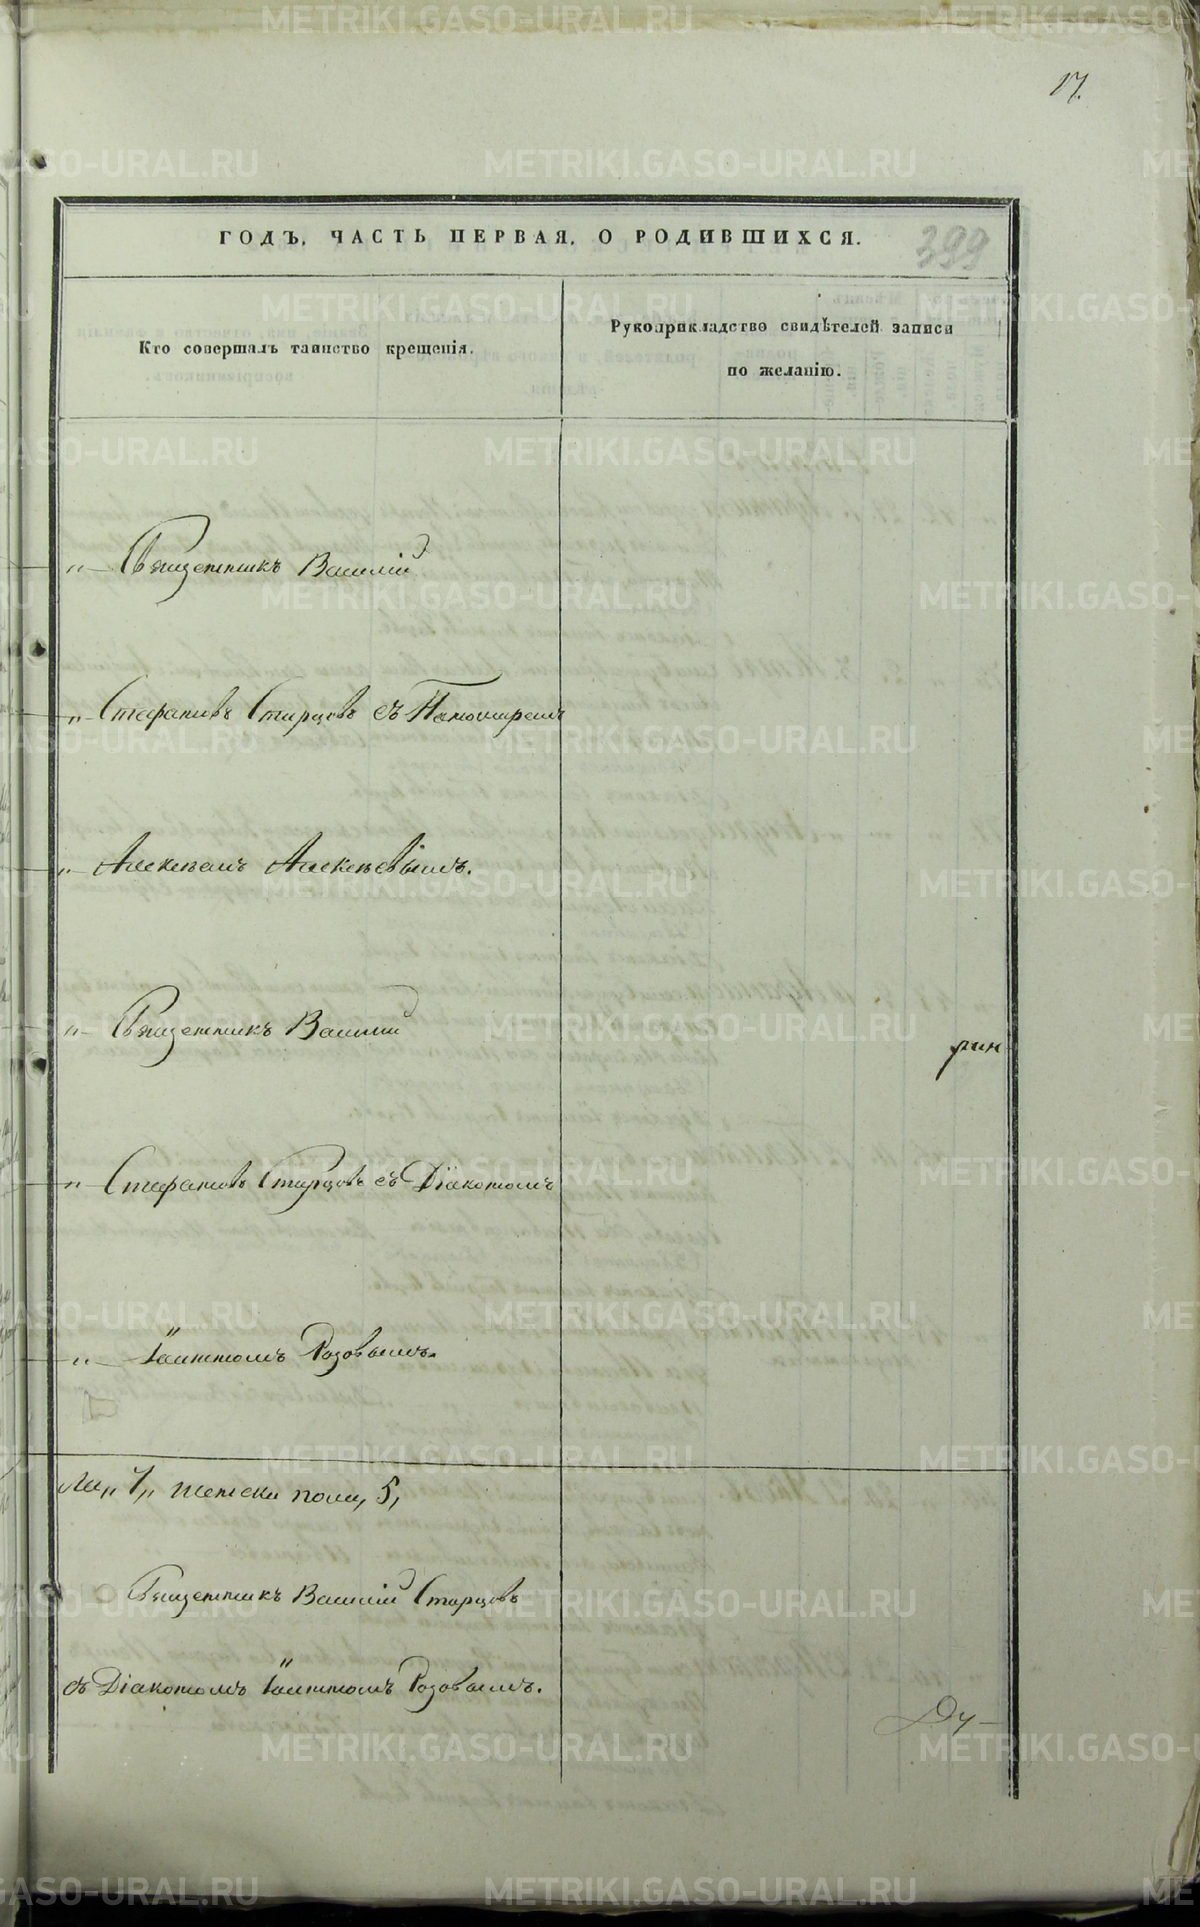 17.
ГОДЪ, ЧАСТЬ ПЕРВАЯ, О РОДИВШИХСЯ. 399
Кто совершалъ таинство крещенія.
Рукоприкладство свидѣтелей записи
по желанію.
„ Священникъ Василій
„ Стефановъ Старцовъ съ Пономаремъ
„ Алексѣемъ Алексѣевымъ.
„ Священникъ Василій
рин
„ Стефановъ Старцовъ съ Діакономъ
„ Іоанномъ Розовымъ.
женска пола, 5,
Священникъ Василій Старцовъ
съ Діакономъ Іоанномъ Розовымъ.
METRIKI.GASO-URAL.RU